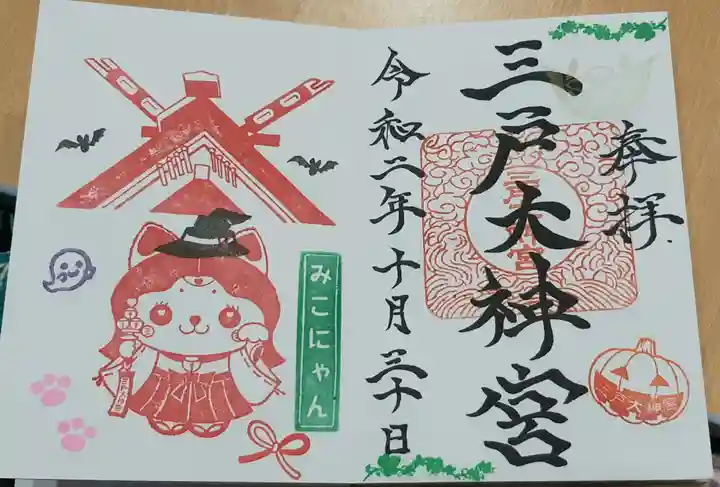 奉拝
三戸大神宮
三戸大神宮
令和二年十月三十日
みこにゃん